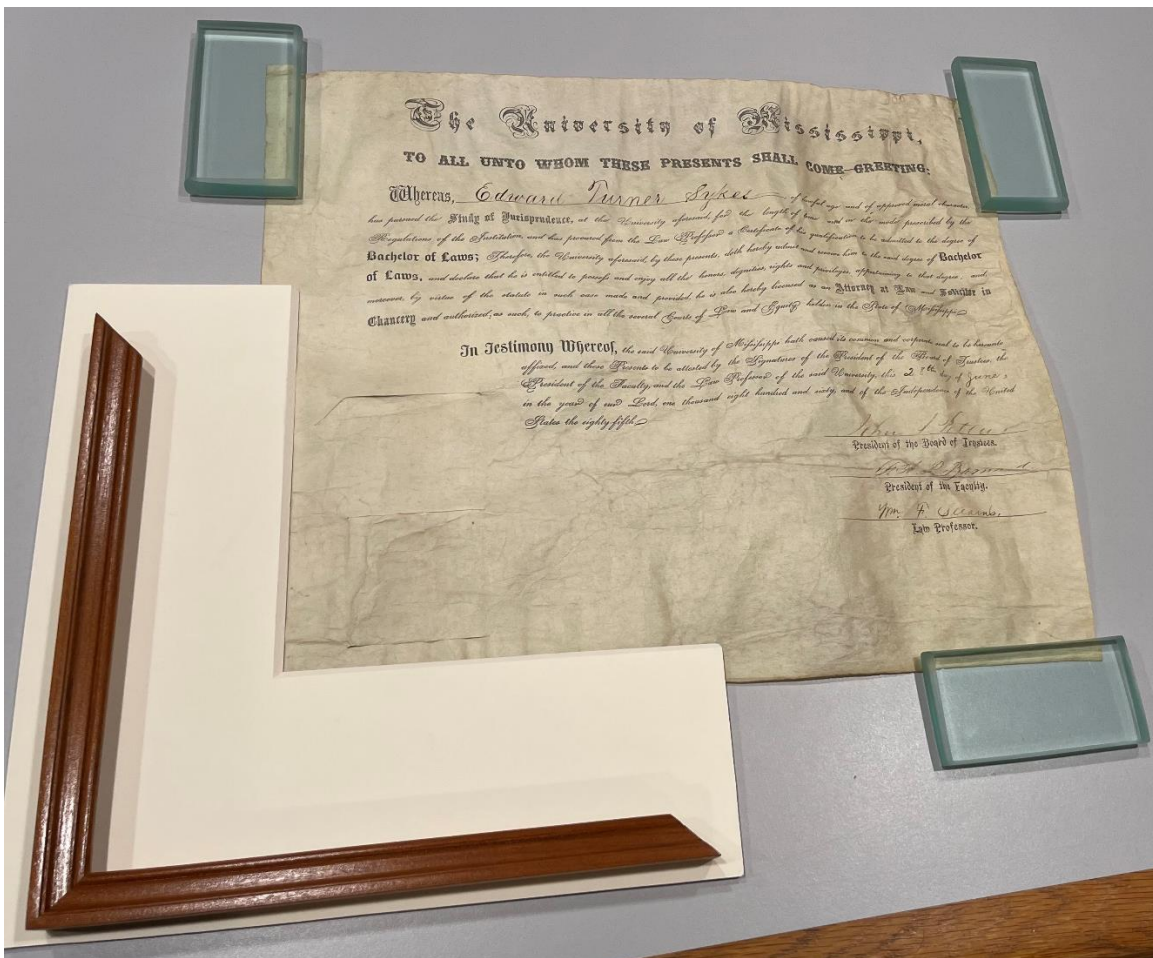 The University of Mississippi,
TO ALL UNTO WHOM THESE PRESENTS SHALL COME—GREETING:
Whereas, Edward Turner Sykes of lawful age and of approved moral character
has pursued the Study of Jurisprudence, at the University aforesaid, for the length of time and in the mode prescribed by the
Regulations of the Institution, and has procured from the Law Professor a Certificate of his qualification to be admitted to the degree of
Bachelor of Laws; Therefore, the University aforesaid, by these presents, doth hereby admit and receive him to the said degree of Bachelor
of Laws, and declare that he is entitled to possess and enjoy all the honors, dignities, rights and privileges appertaining to that degree. and
moreover, by virtue of the statute in such case made and provided, he is also hereby licensed as an Attorney at Law and Solicitor in
Chancery and authorized, as such, to practice in all the several Courts of Law and Equity holden in the State of Mississippi
In Testimony Whereof, the said University of Mississippi hath caused its common and corporate seal to be hereunto
affixed, and these Presents to be attested by the Signatures of the President of the Board of Trustees, the
President of the Faculty, and the Law Professor of the said University, this 28th day of June,
in the year of our Lord, one thousand eight hundred and sixty, and of the Independence of the United
States the eighty-fifth
John
President of the Board of Trustees.
President of the Faculty.
Wm. F. Stearns.
Law Professor.